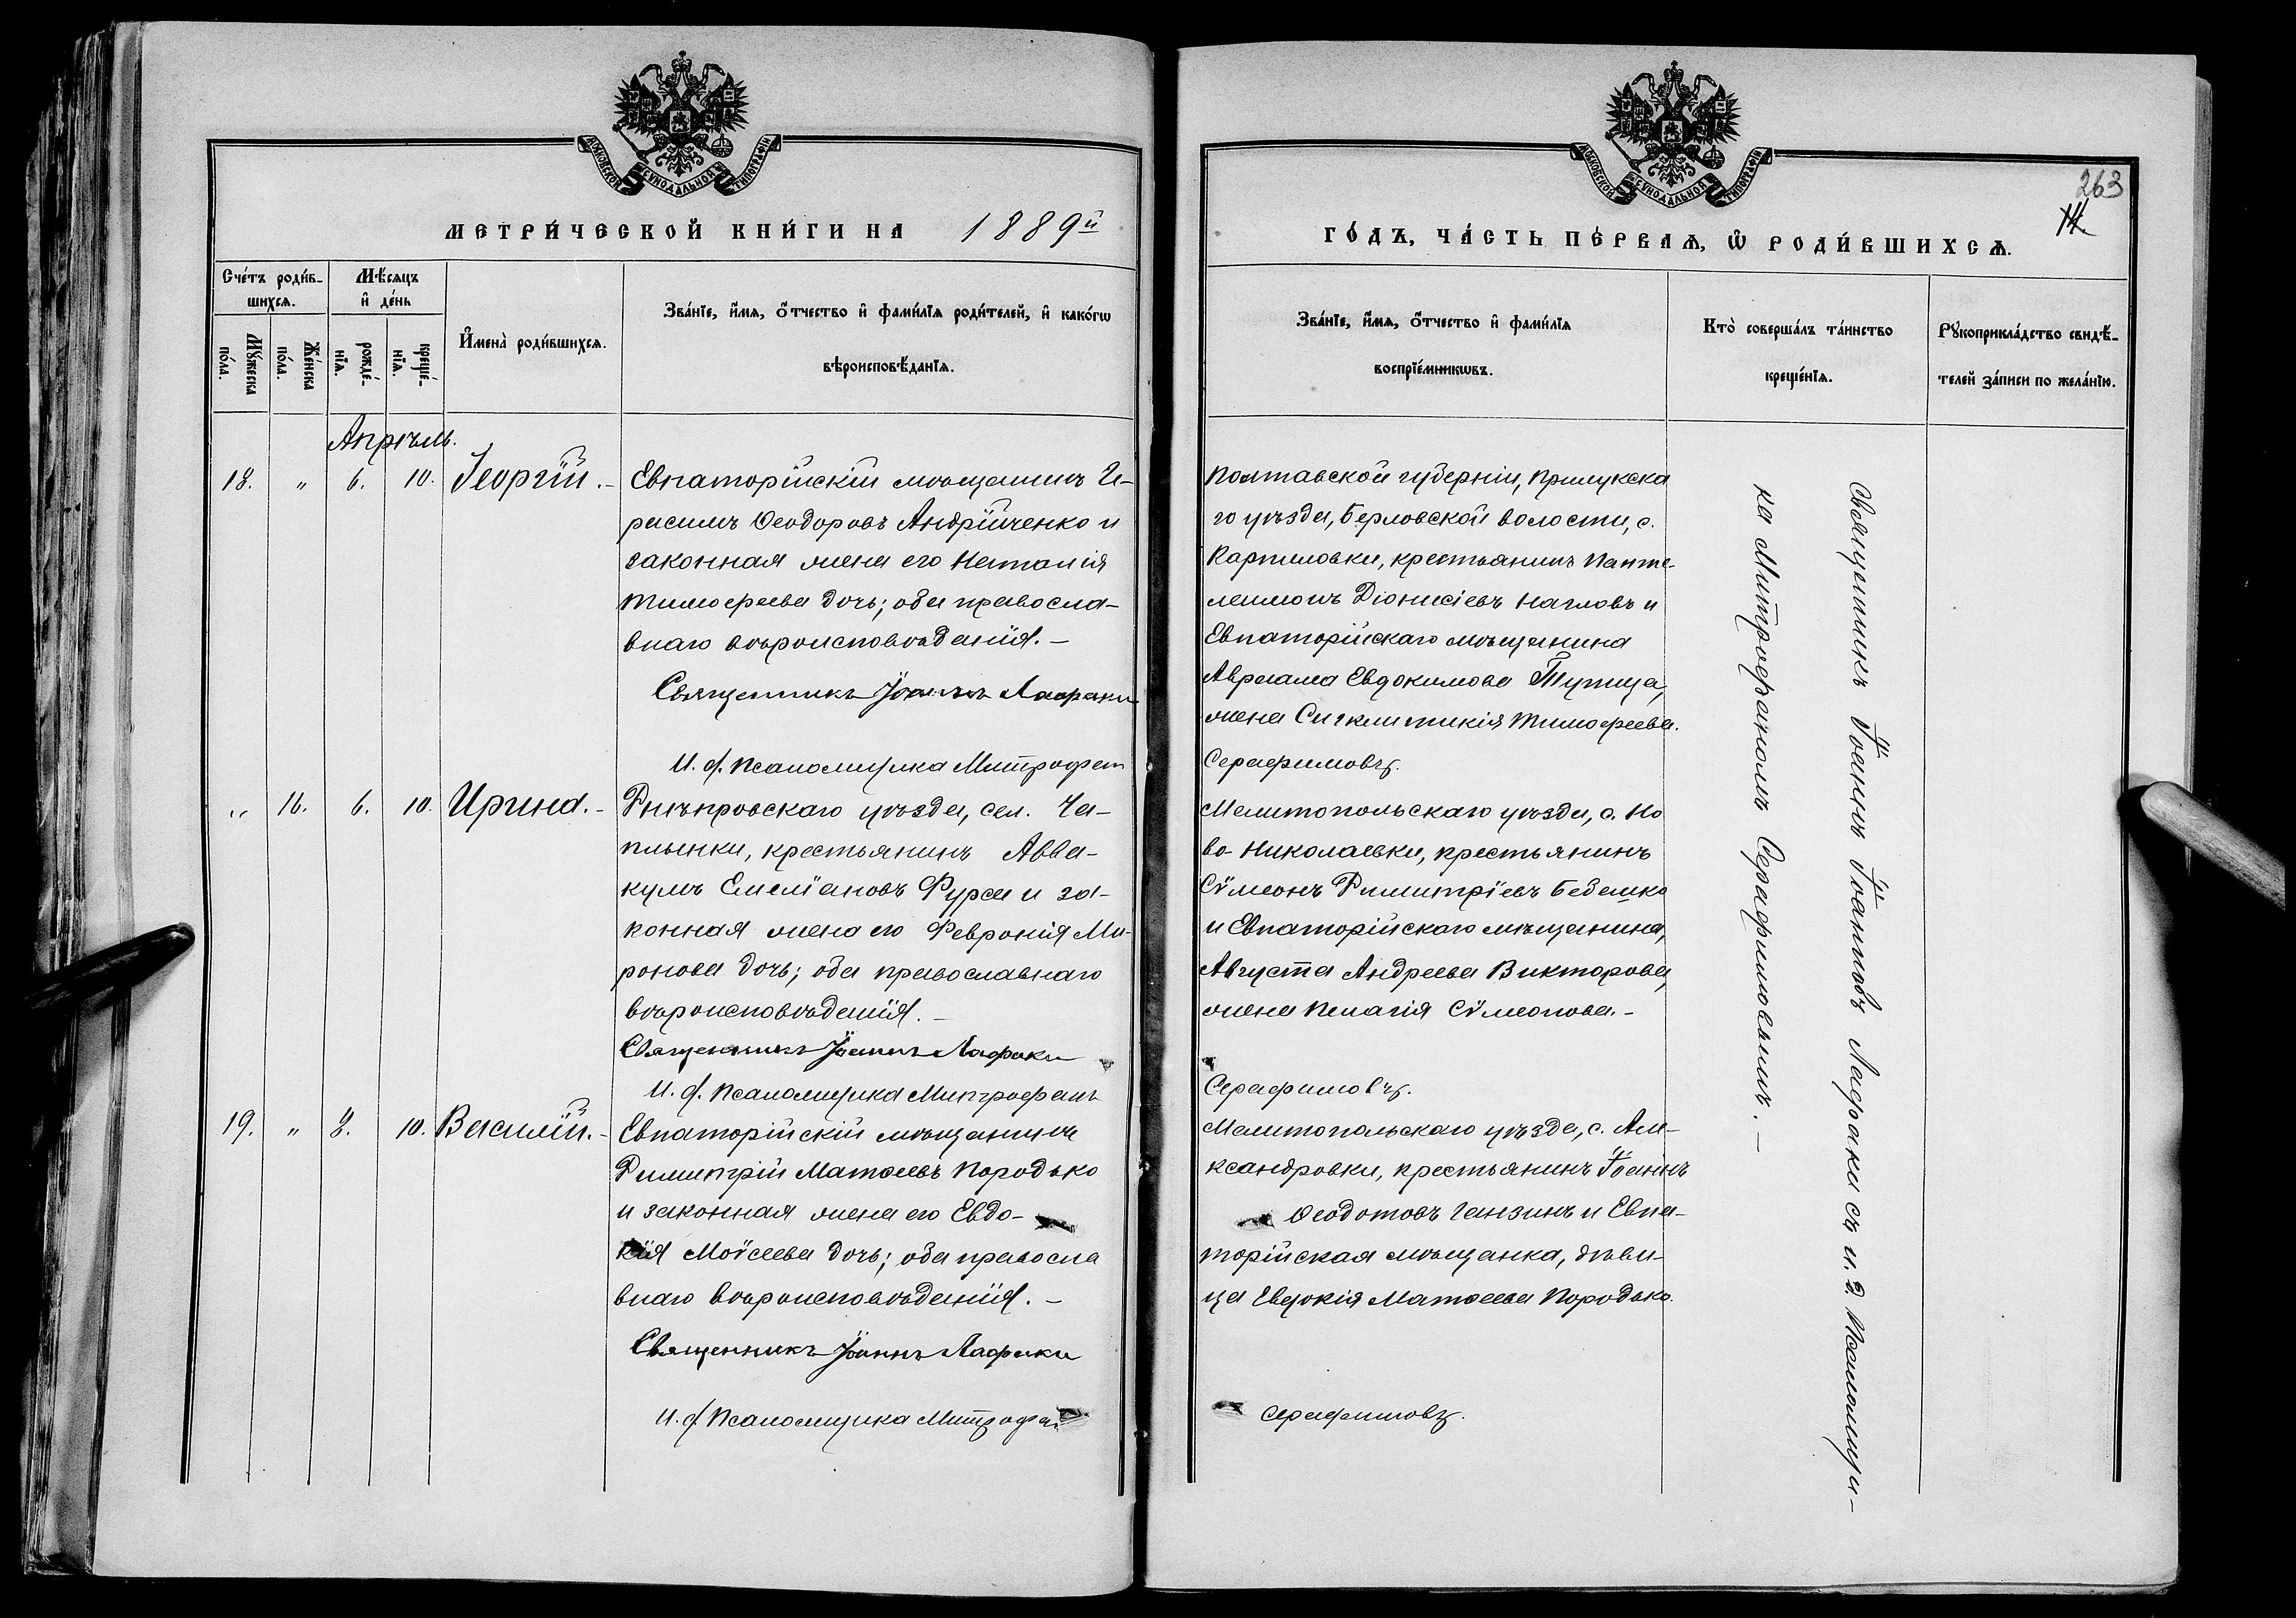 МОСКОВСКОЙ СѴНОДАЛЬНОЙ ТИПОГРАФІИ
МЕТРИ́ЧЕСКОЙ КНИ́ГИ НА 1889й
Сче́тъ роди́в-
шихсѧ.
Мꙋ́жеска
по́ла.
Же́нска
по́ла.
Мѣ́сѧцъ
и҆ де́нь
рожде́-
нїѧ.
креще́-
нїѧ.
И҆мена̀ роди́вшихсѧ.
Зва́нїе, и҆́мѧ, ѻ҆́тчество и҆ фами́лїѧ роди́телей, и҆ како́гѡ
вѣроисповѣ́данїѧ.
Апрѣль.
18. „ 6. 10. Георгій.-
Евпаторійскій мѣщанинъ Ге-
расимъ Ѳеодоровъ Андрійченко и
законная жена его Наталія
Тимофеева дочь; оба правосла-
внаго вѣроисповѣданія.-
Священникъ Іоаннъ Лафраки
И. д. Псаломщика Митрофан
„ 16. 6. 10. Ирина.-
Днѣпровскаго уѣзда, сел. Ча-
плынки, крестьянинъ Авва-
кумъ Емеліановъ Фурса и за-
конная жена его Февронія Ми-
ронова дочь; оба православнаго
вѣроисповѣданія.-
Священникъ Іоаннъ Лафраки
И. д. Псаломщика Митрофанъ
19. „ 8. 10. Василій.-
Евпаторійскій мѣщанинъ
Димитрій Матѳеевъ Породько
и законная жена его Евдо-
кія Моѵсеева дочь; оба правосла
внаго вѣроисповѣданія.-
Священникъ Іоаннъ Лафраки
И. д. Псаломщика Митрофан
МОСКОВСКОЙ СѴНОДАЛЬНОЙ ТИПОГРАФІИ
263
14
ГО́ДЪ, ЧА́СТЬ ПЕ́РВАѦ, Ѡ҆ РОДИ́ВШИХСѦ.
Зва́нїе, и҆́мѧ, ѻ҆́тчество и҆ фами́лїѧ
воспрїе́мникѡвъ.
Кто̀ соверша́лъ та́инство
креще́нїѧ.
Рꙋкоприкла́дство свидѣ́-
телей за́писи по жела́нїю.
Полтавской губерніи, Прилукска
го уѣзда, Берловской волости, с.
Карпиловки, крестьянинъ Панте-
леимонъ Діонисіевъ Нагловъ и
Евпаторійскаго мѣщанина
Авраама Евдокимова Тупица,
жена Сигклитикія Тимофеева.
Серафимовъ.
Мелитопольскаго уѣзда, с. Но
во-Николаевки, крестьянинъ
Сѵмеонъ Димитріевъ Бебешко
и Евпаторійскаго мѣщанина,
Августа Андреева Викторова,
жена Пелагія Сѵмеонова.-
Серафимовъ.
Мелитопольскаго уѣзда, с. Але-
ксандровки, крестьянинъ Іоаннъ
Ѳеодотовъ Ганзинъ и Евпа-
торійская мѣщанка, дѣви-
ца Евдокія Матѳеева Породько.
Серафимовъ.
Священникъ Іоаннъ Іоанновъ Лафраки съ и. д. Псаломщи-
ка Митрофаномъ Серафимовымъ.-